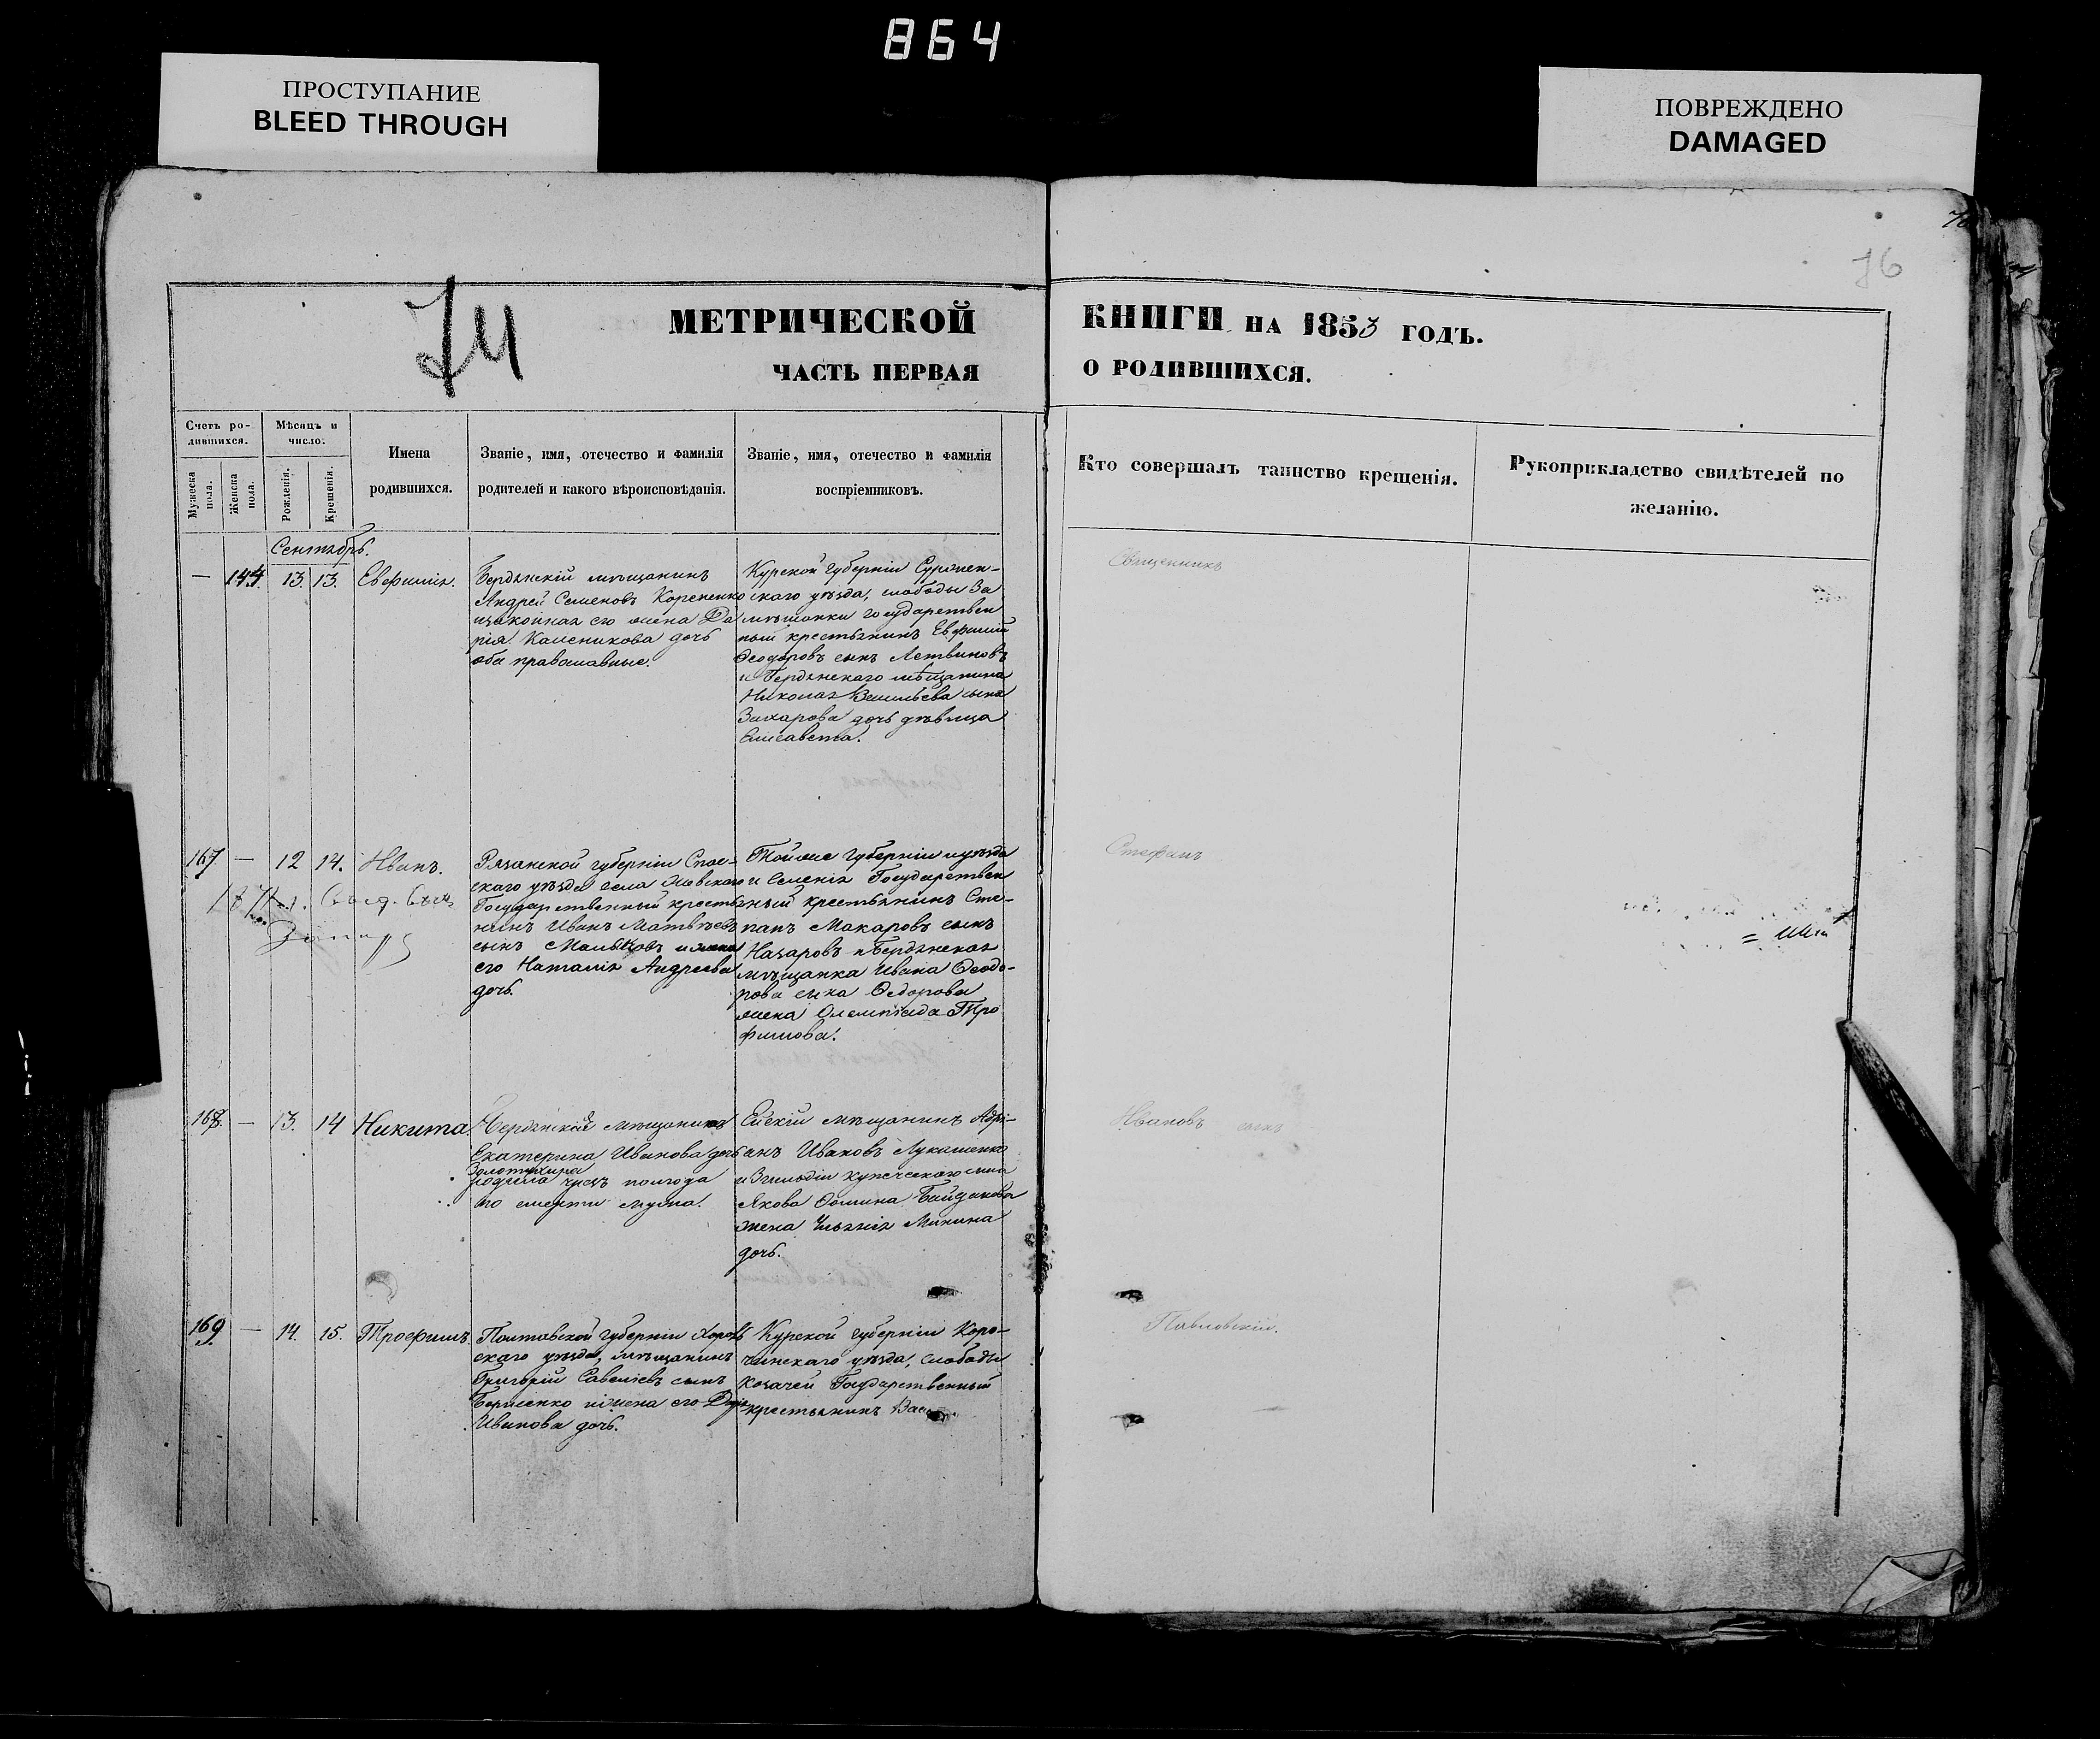 864
ПРОСТУПАНИЕ
BLEED THROUGH
ПОВРЕЖДЕНО
DAMAGED
76
74
МЕТРИЧЕСКОЙ
ЧАСТЬ ПЕРВАЯ
КНИГИ НА 1853 ГОДЪ.
О РОДИВШИХСЯ.
Счетъ ро-
дившихся.
Мужеска пола.
Женска пола.
Мѣсяцъ и
число.
Рожденія.
Крещенія.
Имена
родившихся.
Званіе, имя, отечество и фамилія
родителей и какого вѣроисповѣданія.
Званіе, имя, отечество и фамилія
воспріемниковъ.
Кто совершалъ таинство крещенія.
Рукоприкладство свидѣтелей по
желанію.
Сентябрь.
— 144. 13. 13. Евфимія.
Бердянскій мѣщанинъ
Андрей Семеновъ Корененко
и законная его жена Да
рія Каленикова дочь
оба православные.
Курской Губерніи Суджен-
скаго уѣзда, слободы За
мостянки государствен
ный крестьянинъ Евфимій
Ѳеодоровъ сынъ Летвиновъ
и Бердянскаго мѣщанина
Николая Васильева сына
Захарова дочь дѣвица
Елисавета.
Священникъ
167 — 12 14. Иванъ.
Рязанской губерніи Спас-
скаго уѣзда села
Государственный крестья
нинъ Иванъ Матвѣевъ
сынъ и жена
его Наталія Андреева
дочь.
Тойже Губерніи и уѣзда
и Селенія Государствен
ный крестьянинъ Сте-
панъ Макаровъ сынъ
Назаровъ и Бердянская
мѣщанка Ивана Ѳеодо-
рова сына Ѳедорова
жена Олемпіада Тро
фимова.
Стефанъ
168. — 13. 14 Никита.
Бердянская мѣщанка
Екатерина Иванова дочь
Золотухина
родила чрезъ полгода
по смерти мужа.
Ейскій мѣщанинъ Адрі-
анъ Ивановъ Лукашенко
и купеческаго сына
Якова Ѳомина Байдакова
жена Ульянія Минина
дочь.
Ивановъ сынъ
169. — 14. 15. Трофимъ.
Полтавской губерніи Хороль
скаго уѣзда, мѣщанинъ
Григорій Савеліевъ сынъ
Борисенко и жена его Дарія
Иванова дочь.
Курской губерніи Коро-
чинскаго уѣзда, слободы
Козачей Государственный
крестьянинъ
Павловскій.